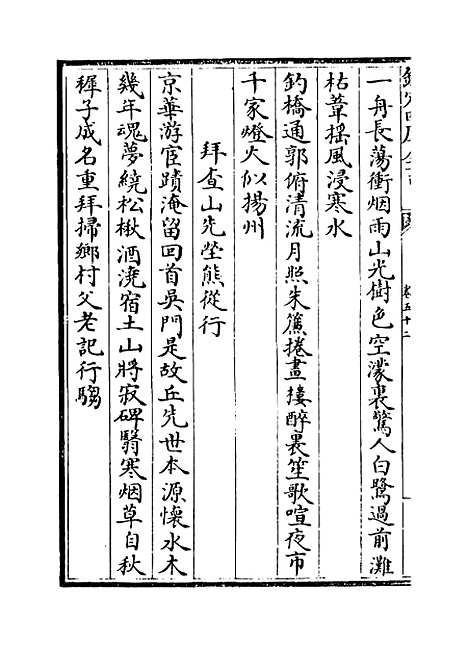 一舟長蕩衝烟雨山光樹色空濛裏驚人白鷺過前灘
枯葦揺風浸寒水
釣橋通郭俯清流月照朱簾捲畫樓醉裏笙歌喧夜市
千家燈火似揚州
拜查山先塋熊從行
京華游宦蹟淹留回首吳門是故丘先世本源懷水木
幾年魂夢繞松楸酒澆宿土山將寂碑翳寒烟草自秋
稺子成名重拜掃鄉村父老記行騶
卷五十二